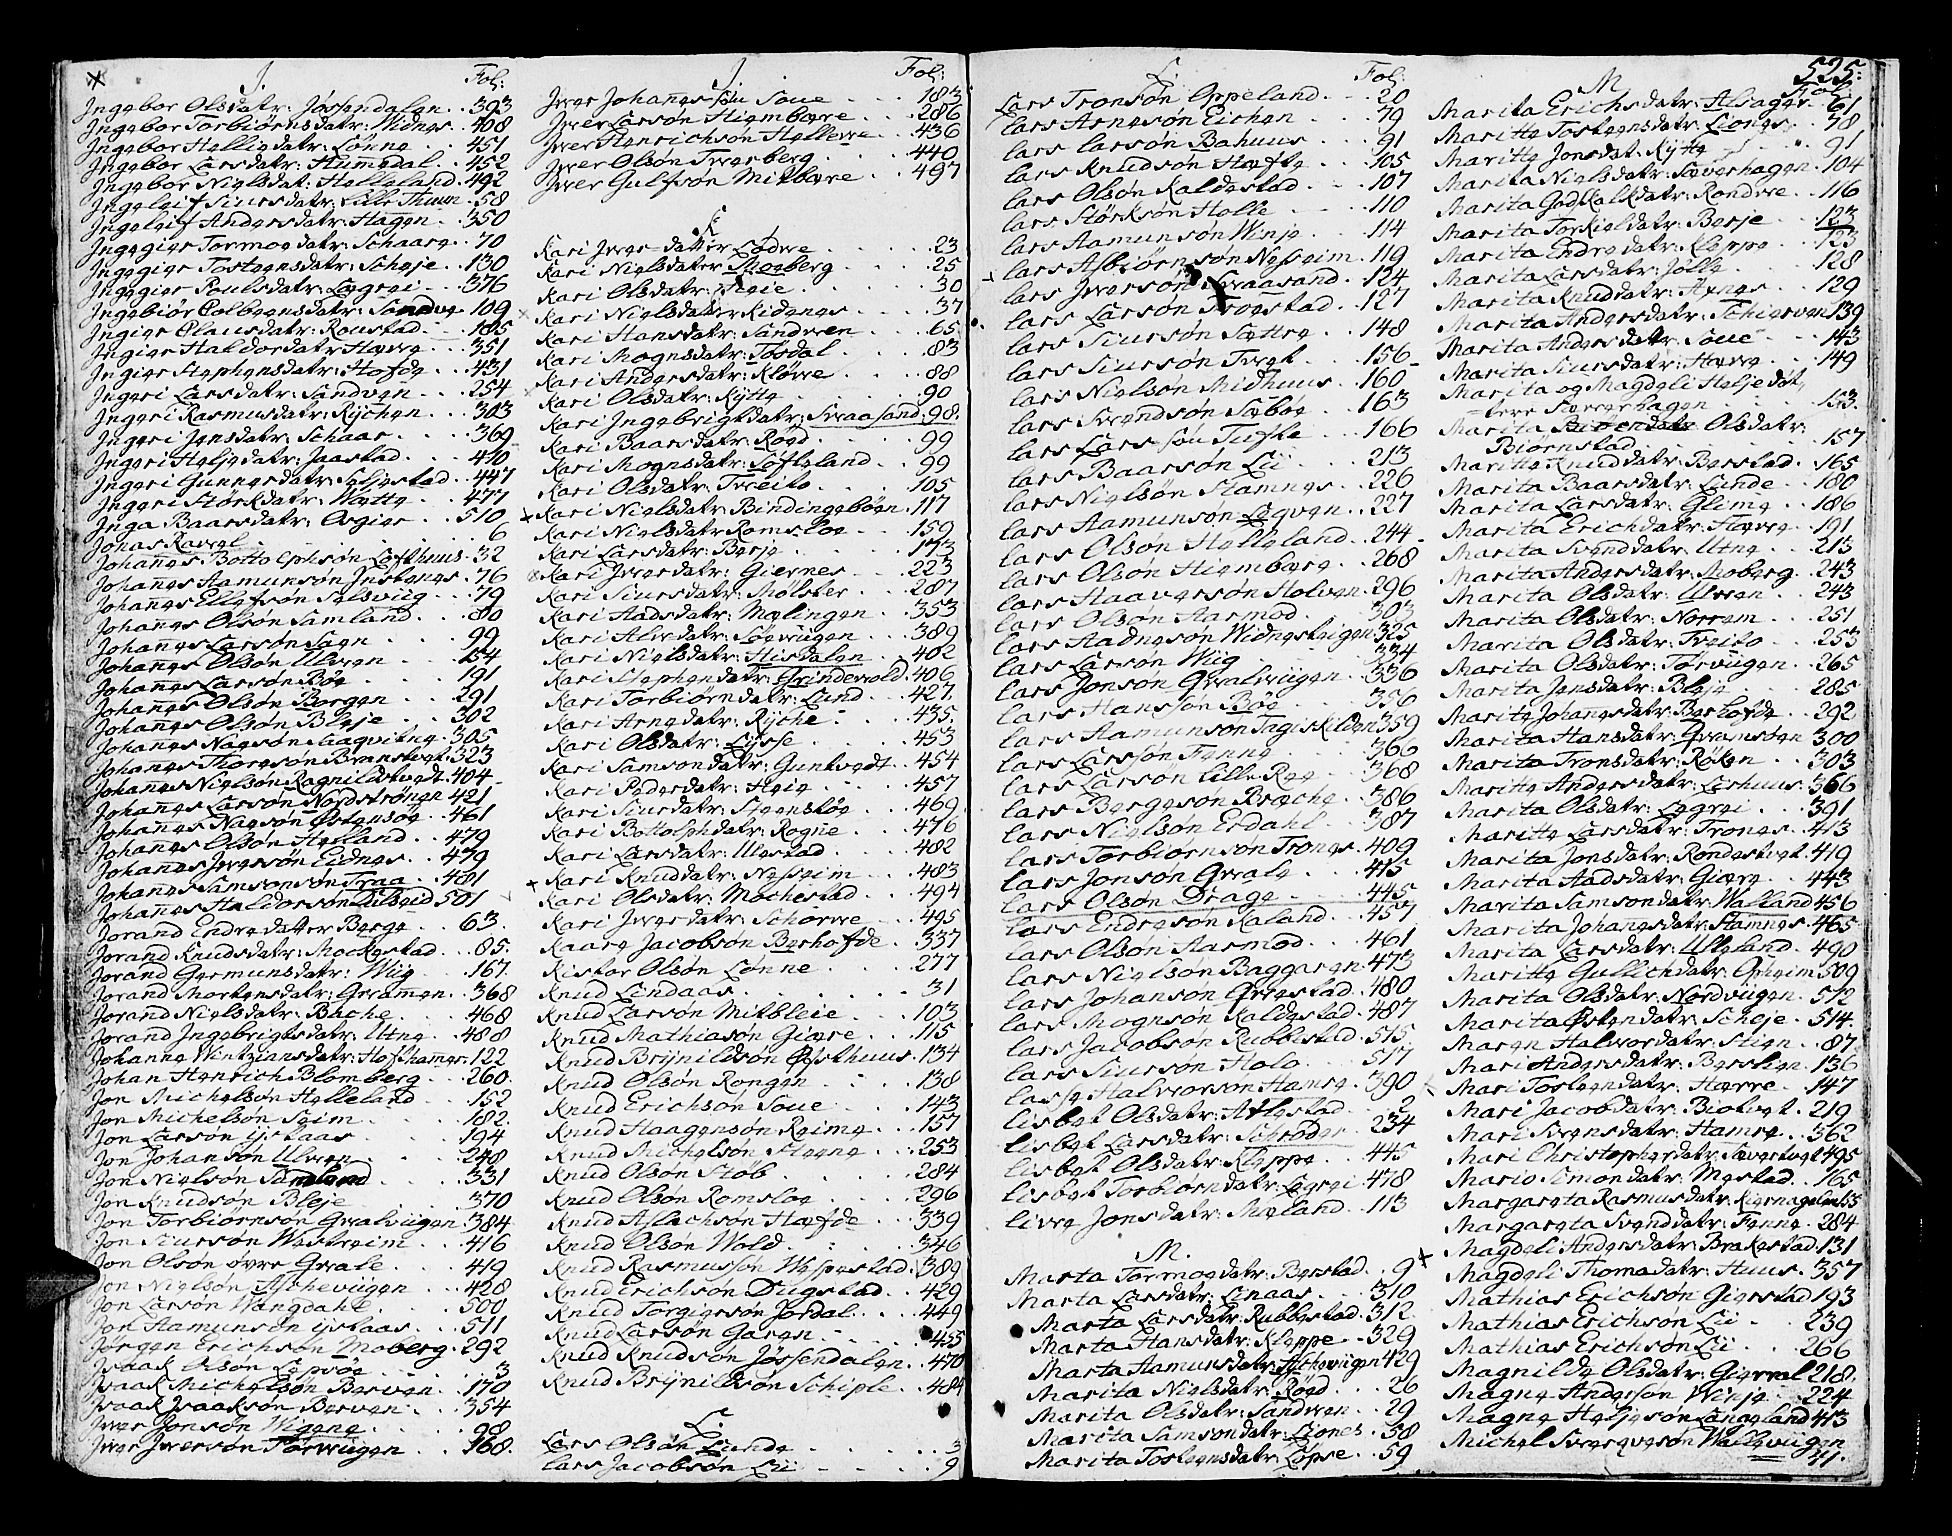 J. Fol:
Ingebor Olsdatr: Jøssendalen . 393
Ingebor Torbiørnsdatr: Widnes . . 408
Ingebor Helliedatr: Lønne . . 451
Ingebor Larsdatr: Humedal . . 452
Ingebor Nielsdat: Helleland . 492
Ingeleif Siursdatr: Lille Thuun . 58
Ingeleif Andersdatr: Hagen . 350
Ingegier Tormodatr: Schaare . . 70
Ingegier Tosteensdatr: Scheje . . 130
Ingegier Poulsdatr: Lægrei . . 376
Ingebiør Colbeensdatr: Sandve 109
Ingier Clausdatr: Roustad . . 185
Ingier Haldordatr Hæure . . 351
Ingier Stephensdatr: Hofde . . 431
Ingeri Larsdatr: Sandven . . 254
Ingeri Rasmusdatr: Rÿchen . . 303
Ingeri Jensdatr: Schaar . . . 369
Ingeri Heljedatr: Jaastad . . 410
Ingeri Gunnersdatr: Seljestad . 447
Ingeri Størkdatr: Watte . . 477
Inga Baarsdatr: Osgier . . 510
Johan Ravel . . . 6
Johanes Bottolphsøn Lofthuus . 32
Johanes Aamunsøn Instenes . 76
Johanes Ellefsøn Selsviig . . 79
Johanes Olsøn Samland . . 80
Johanes Larsøn Saen . . 99
Johanes Olsøn Ulven . . 154
Johanes Larsøn Bøe . . 191
Johanes Olsøn Borgen . . 291
Johanes Olsøn Bleje . . 302
Johanes Nagsøn Aaqvitne . 305
Johanes Thoresøn Branstvet . 323
Johanes Nielsøn Ragnildstvedt . 404
Johanes Larsøn Nordstrønen 421
Johanes Nagsøn Østensøe . 461
Johanes Olsøn Helland . . 479
Johanes Iversøn Eidnes . . 479
Johanes Samsonsøn Traa . . 481
Johanes Haldorsøn Lilseid 501
Jorand Endredatter Berge . . 63.
Jorand Knudsdatr: Mockestad . . 85.
Jorand Germunsdatr: Wiig . . 167.
Jorand Mortensdatr: Gramen . 368
Jorand Nielsdatr: Bache . . 468
Jorand Ingebrigtsdatr: Utne . . 488
Johanne Wintziansdatr: Hofshamer: 122
Johan Henrich Blomberg . . 260.
Jon Michelsøn Helleland . . 152
Jon Michelsøn Seim . . 182.
Jon Larsøn ijstaas . . 194
Jon Johansøn Ulven . . 248
Jon Nielsøn Samland . . 331
Jon Knudsøn Bleje . . 370
Jon Torbiørnsøn Gralviigen . 384
Jon Siursøn Westreim . . 416
Jon Olsøn øvre Grale . . 419
Jon Nielsøn Aschevigen . . 428
Jon Larsøn Wangdahl . . 500
Jon Aamunsøn ijstaas . . 511
Jørgen Erichsøn Moberg . 292
Isaak Olsøn Lepsøe . . 3
Isaak Michelsøn Berven . . 170
Isaak Isaaksøn Berven . . 354
Iver Jonsøn Wigene . . 98
Iver Iversøn Torviigen . . 168.
J. Fol:
Iver Johanessøn Soue . . 183
Iver Larsøn Hiembære . . 286
Iver Henrichsøn Hellevre . . 436
Iver Olsøn Tverberg . . 440
Iver Gulfsøn Mitbære . . 497
K
Kari Iversdatter Lødve . . 23
Kari Nielsdater Moeberg . . 25
Kari Olsdatr: Heie . . 30
Kari Nielsdatter Ridenes . . 37
Kari Hansdatr: Sandveen . . 65
Kari Mognsdatr: Tøsdal . . 83
Kari Andersdatr: Kløvre . . 88
Kari Olsdatr: Rÿtte . . 90
Kari Ingebrigtdatr: Svaasand . 98.
Kari Baarsdatr: Roed . . 99
Kari Mognsdatr: Softeland . . 99
Kari Olsdatr: Tveito . . 105
Kari Nielsdatr: Bindingsbøen . 117
Kari Nielsdatr: Romsloe . . 159
Kari Larsdatr: Berje . . 173
Kari Iversdatr: Giernes . . 223
Kari Siursdatr: Mølster . . 287
Kari Aadsdatr: Mælingen . . 353
Kari Alvsdatr: Söeviigen . . 389
Kari Nielsdatr: Hisdalen . . 402
Kari Stephensdatr: Grindevold . 406
Kari Torbiørndatr: Lund . . 427.
Kari Arnedatr: Rÿche . . 435.
Kari Olsdatr: Lÿsse . . 453
Kari Samsondatr: Guntvedt . . 454
Kari Pedersdatr: Heie . . 457
Kari Siursdatr: Steenstøe . . 469
Kari Bottolphdatr: Rogne . . 476
Kari Larsdatr: Ulestad . . 482
Kari Knuddatr: Nesseim . . 483
Kari Olsdatr: Mochestad . . 494
Kari Iversdatr: Schorvre . . 495
Kaare Jacobsøn Berhofde . . 337
Kistor Olsøn Lønne . . 277
Knud Lindaas . . 31
Knud Larsøn Mitbleie . . 103
Knud Mathiasøn Giære . . 115
Knud Brÿnildsøn Øÿsthuus . 134
Knud Olsøn Rongen . . 138
Knud Erichsøn Soue . . 143
Knud Haagensøn Reime . . 157
Knud Michelsøn Steene . . 253
Knud Olsøn Støb . . 284
Knud Olsøn Romsloe . . 296
Knud Aslachsøn Hæfde . . 339
Knud Olsøn Wold . . 346
Knud Rasmussøn Wespestad . 389
Knud Erichsøn Dugstad . . 429
Knud Torgiersøn Jordal . . 449
Knud Larsøn Garen . . 455
Knud Knudsøn Jøssendalen . 470
Knud Brÿnildsøn Schiple . . 484
L.
Lars Olsøn Lunde . . 3
Lars Jacobsøn Lii . . 9
L Fol:
Lars Tronsøn Oppeland . . 20
Lars Arnesøn Eichen . . 79
Lars Larsøn Bahuus . . 91
Lars Knudsøn Hæfte . . 105
Lars Olsøn Kaldestad . . 107
Lars Størksøn Helle . . 110
Lars Aamunsøn Winje . . 114
Lars Asbiørnsøn Nesseim . 119
Lars Iversøn Svaasand . 124
Lars Larsøn Troestad . . 127
Lars Siursøn Sættre . . 148
Lars Siursøn Tvet . . 156
Lars Nielsøn Midhuus . . 160
Lars Svendsøn Sæbøe . . 163
Lars Larssøn Tufte . . 166
Lars Baarsøn Lii . . 213
Lars Nielsøn Stamnes . . 226
Lars Aamunsøn Leqven . . 227
Lars Olsøn Helleland . . 244
Lars Olsøn Hiembære . . 268
Lars Haaversøn Holven . 296
Lars Olsøn Aarmod . . 303
Lars Aadnesøn Widnesteigen 325
Lars Larsøn Wiig . . 334
Lars Jonsøn Gralviigen . . 336
Lars Hanssøn Bøe . . 356
Lars Aamunsøn Ingiskilden 359
Lars Larssøn Fenne . . 366
Lars Larsøn Lille Røe . . 368
Lars Bergesøn Bræche . . 386
Lars Nielsøn Erdahl . . 387
Lars Torbiørnsøn Trones . 409
Lars Jonsøn Grale . . 415
Lars Olsøn Drage . . 445
Lars Endresøn Raland . . 457
Lars Olsøn Aarmod . . 461
Lars Nielsøn Baggaren . 473
Lars Johansøn Grestad . . 480
Lars Mognsøn Kaldestad . 487
Lars Jacobsøn Rubbestad . 515
Lars Siursøn Holo . . 517
Lasse Halversøn Hamre . . 390
Lisbet Olsdatr: Atlestad . . 2
Lisbet Larsdatr: Schrøder . 234
Lisbet Olsdatr: Kleppe . . 445
Lisbet Torbiørndatr: Legrei . 478
Livre Jonsdatr: Mæland . . 113
M.
Marta Tormoedatr: Benstad . . 9
Marta Larsdatr: Linaas . . 310
Marta Larsdatr: Rubbestad . 312
Marta Hansdatr: Kleppe . . 329
Marta Aamunsdatr: Aschevigen 429
Marita Nielsdatr: Røed . . 26
Marita Olsdatr: Sandven . . 29
Marita Samsondatr: Liones . . 38
Marita Tosteensdatr: Løpse . . 59
525:
M Fol:
Marita Erichsdatr: Alsager . 61
Marite Tosteensdatr: Liones . . 78
Marite Jonsdat: Rÿtte . . 91
Marita Nielsdatr: Sæverhagen . 104
Marita Godskalkdatr: Rondvre . . 116
Marita Torkieldatr: Berje . . 123
Marita Endredatr: Kleppe . . 123
Marita Larsdatr: Jølle . . 128
Marita Knuddatr: Apnes . . 129
Marita Andersdatr: Schierven 139
Marita Andersdatr: Soue . . 143
Marita Siursdatr: Hæure . . 149
Marita og Magdeli Heljedat
tere Sæverhagen . . 153.
Marita Olsdatr:
Biørnstad . . 157
Marite Knuddatr: Berstad . . 165
Marita Baarsdatr: Linde . . 180
Marita Larsdatr: Glime . . 186
Marita Erichdatr: Hævre . . 191
Marita Svenddatr: Utne . . 213
Marita Andersdatr: Moberg . 243
Marita Olsdatr: Ulven . . 243
Marita Olsdatr: Norrem . . 251
Marita Olsdatr: Tveito . . 253
Marita Olsdatr: Tørviigen . . 265
Marita Jensdatr: Bleje . . 285
Marite Johanesdatr: Berhofde . . 292
Marita Hansdatr: Gramsøen 300
Marita Tronsdatr: Røken . . 303
Marite Andersdatr: Lirhuus . 366
Marita Olsdatr: Legrei . . 391
Marite Larsdatr: Trones . . 413
Marita Jonsdatr: Rondestvet . 419
Marita Aadsdatr: Giære . . 443
Marita Samsondatr: Walland 456
Marita Johanesdatr: Stamnes . 465
Marita Larsdatr: Ulleland . . 490
Marite Gullichdatr: Opheim 509
Marita Olsdatr: Nordviigen . 512
Marita Østendatr: Scheje . . 514.
Maren Halvordatr: Stien . . 87
Mari Andersdatr: Berslien . 136
Mari Tosteendatr: Hærre . . 147
Mari Jacobdatr: Biotvet . 219
Mari Svensdatr: Hamre . . 362
Mari Christopherdatr: Sævertvet 495
Mario Simondatr: Mestad . . 165
Margareta Rasmusdatr: Kiernagelen 155
Margareta Svenddatr: Fenne . 284
Magdeli Andersdatr: Brakestad 131
Magdeli Thomadatr: Huus . 357
Mathias Erichsøn Gierstad 193
Mathias Erichsøn Lii . . 239
Mathias Erichsøn Lii . . 266
Magnilde Olsdatr: Gierval 218.
Magne Anderson Winje . . 224
Magne Heljesøn Langeland 413
Michel Sverqvesøn Walleviigen
41.